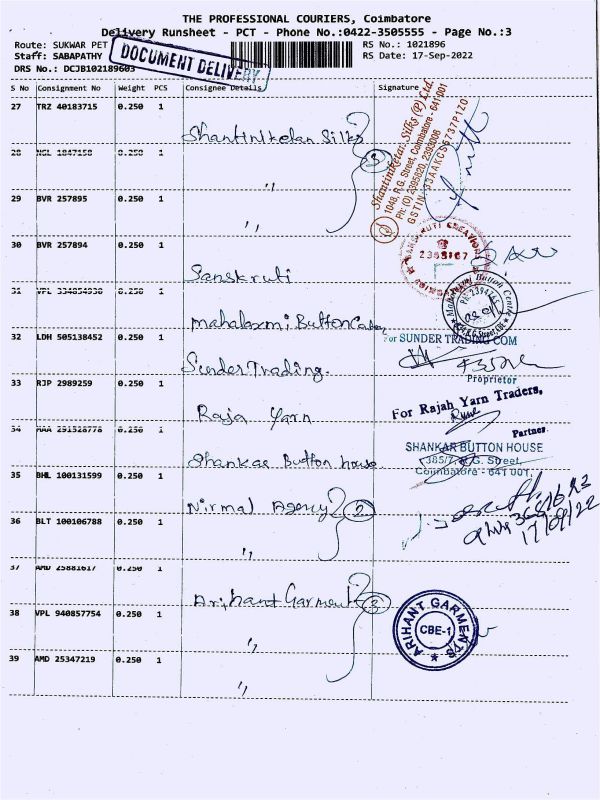 THE PROFESSIONAL COURIERS, Coimbatore
Delivery Runsheet - PCT - Phone No.:0422-3505555 - Page No.:3
Route: SUKWAR PET
RS No.: 1021896
Staff: SABAPATHY
RS Date: 17-Sep-2022
DRS No.: DCJB102189603
DOCUMENT DELIVERY
S No Consignment No Weight PCS Consignee Details Signature
27 TRZ 40183715 0.250 1
Shantiniketan Silks
3
Shantiniketan Silks (P) Ltd.
1048, R.G. Street, Coimbatore - 641 001
Ph: (O) 2395820, 2393006
GSTIN: 33AAKCS6737P1Z0
28 NGL 1847158 0.250 1
"
29 BVR 257895 0.250 1
"
30 BVR 257894 0.250 1
Sanskruti
31 VPL 0.250 1
Mahalaxmi Button
Mahalaxmi Button Centre
32 LDH 505138452 0.250 1
Sunder Trading.
For SUNDER TRADING COM
Proprietor
33 RJP 2989259 0.250 1
Raja Yarn
For Rajah Yarn Traders,
Partner.
34 MAA 291528778 0.250 1
Shankar Button house
SHANKAR BUTTON HOUSE
385/7, R.G. Street,
Coimbatore - 641 001.
35 BHL 100131599 0.250 1
Nirmal Agency
2
17/09/22
36 BLT 100106788 0.250 1
"
37 AMD 25881617 0.250 1
Arihant Garment
3
ARIHANT GARMENTS
CBE-1
38 VPL 940857754 0.250 1
"
39 AMD 25347219 0.250 1
"